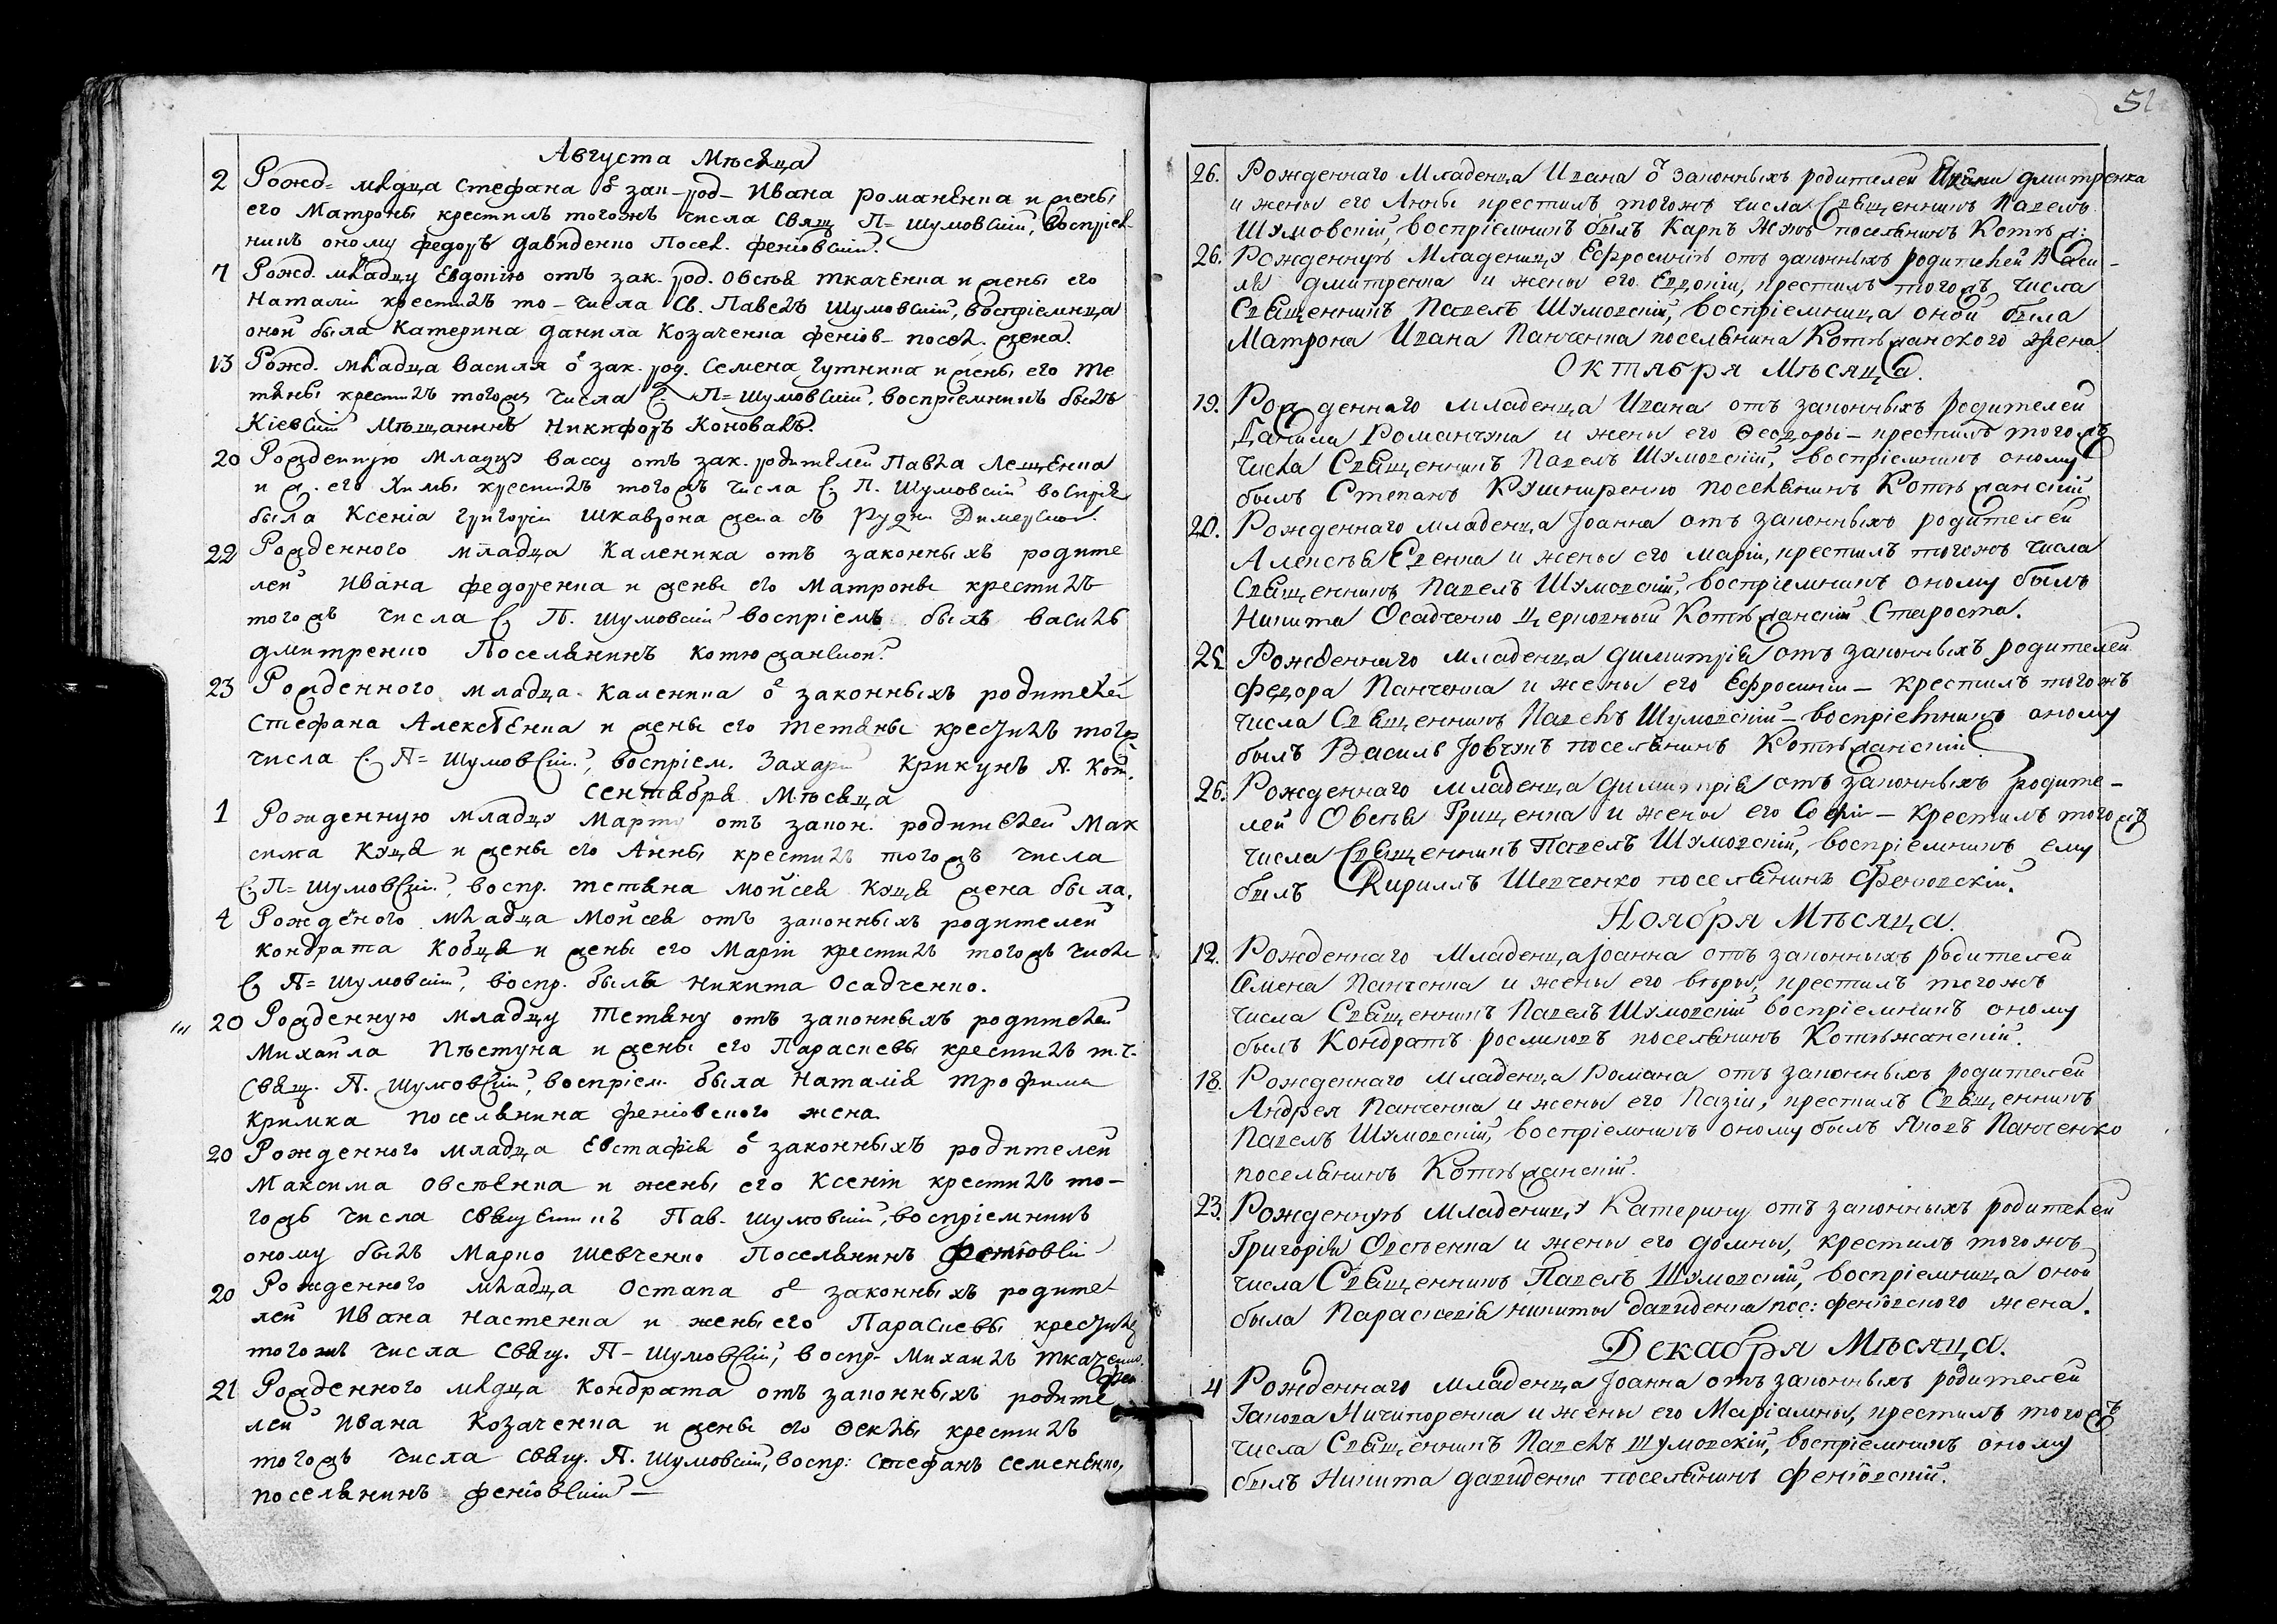 Августа Мѣсяца
2 Рожд= млдца Стефана ѿ зак-род- Ивана Романенка и жены
его Матроны крестилъ тогожъ числа Свящ П= Шумовскій, воспріем-
никъ оному Федоръ Давиденко Посел. Феніовскій.
7 Рожд. младцу Евдокію отъ зак. род. Овсѣя Ткаченка и жены его
Наталіи крестилъ то- числа Св. Павелъ Шумовскій, воспріемница
оной была Катерина Данила Козаченка Феніов- посел. жена.
13 Рожд. младца Василя ѿ зак. род. Семена Гутника и жены его Те
тяны крестилъ тогожъ числа С. П= Шумовскій. воспріемникъ былъ
Кіевскій Мѣщанинъ Никифоръ Коновалъ.
20 Рожденную Младцу Вассу отъ зак. родителей Павла Лещенка
и ж. его Химы крестилъ тогожъ числа С. П. Шумовскій воспріем
была Ксенія Григорія Шкаврона жена съ Рудни Димерской.
22 Рожденного младца Каленика отъ законныхъ родите
лей Ивана Федоренка и жены его Матроны крестилъ
тогожъ числа С. П. Шумовскій воспріемъ былъ Василь
Дмитренко Поселянинъ Котюжанской.
23 Рожденного младца Каленика ѿ законныхъ родителей
Стефана Алексѣенка и жены его Тетяны крестилъ тогожъ
числа С. П= Шумовскій, воспріем. Захарій Крикунъ П. Кот.
Сентября Мѣсяца
1 Рожденную младцу Марту отъ закон. родителей Мак
сима Куця и жены его Анны крестилъ тогожъ числа
С. П= Шумовскій, воспр. Тетяна Мойсея Куця жена была.
4 Рожденого младца Мойсея отъ законныхъ родителей
Кондрата Кобця и жены его Маріи крестилъ тогожъ числа
С. П= Шумовскій, воспр. былъ Никита Осадченко.
20 Рожденную младцу Тетяну отъ законныхъ родителей
Михайла Пѣстуна и жены его Параскевы крестилъ т.ч.
Свящ. П. Шумовскій, воспріем. была Наталія Трофима
Кримка поселянина Феніовского жена.
20 Рожденного младца Евстафія ѿ законныхъ родителей
Максима Овсѣенка и жены его Ксеніи крестилъ то-
гожъ числа Священникъ Пав. Шумовскій, воспріемникъ
оному былъ Марко Шевченко Поселянинъ Феніовскі
20 Рожденного младца Остапа ѿ законныхъ родите
лей Ивана Настенка и жены его Параскевы крестилъ
тогожъ числа Свящ. П- Шумовскій, воспр- Михаилъ Ткаченко.
Фен
21 Рожденного млдца Кондрата отъ законныхъ родите
лей Ивана Козаченка и жены его Ѳеклы крестилъ
тогожъ числа Свящ. П. Шумовскій, воспр: Стефанъ Семененко,
поселянинъ Феніовскій —
52
26. Рожденнаго Младенца Ивана ѿ законныхъ родителей Дмитренка
и жены его Анны крестилъ тогожъ числа Священникъ Павелъ
Шумовскій, воспріемникъ былъ Карпъ Жукъ поселянинъ Котюж:
26. Рожденную Младеницу Ефросинію отъ законныхъ родителей Васи-
ля Дмитренка и жены его Евдокіи, крестилъ тогожъ числа
Священникъ Павелъ Шумовскій, воспріемница оной была
Матрона Ивана Панченка поселянина Котюжанского жена
Октября Мѣсяца.
19. Рожденнаго Младенца Ивана отъ законныхъ родителей
Данила Романчука и жены его Ѳеодоры- крестилъ тогожъ
числа Священникъ Павелъ Шумовскій, воспріемникъ оному
былъ Степанъ Кушниренко поселянинъ Котюжанскій
20. Рожденнаго младенца Іоанна отъ законныхъ родителей
Алексѣя Евенка и жены его Маріи, крестилъ тогожъ числа
Священникъ Павелъ Шумовскій, воспріемникъ оному былъ
Никита Осадченко Церковный Котюжанскій Староста.
25. Рожденнаго младенца Димитрія отъ законныхъ родителей
Федора Панченка и жены его Ефросиніи- крестилъ тогожъ
числа Священникъ Павелъ Шумовскій- воспріемникъ оному
былъ Василь Іовчукъ поселянинъ Котюжанскій
26. Рожденнаго младенца Димитрія отъ законныхъ родите-
лей Овсѣя Грищенка и жены его Софіи- крестилъ тогожъ
числа Священникъ Павелъ Шумовскій, воспріемникъ ему
былъ Кириллъ Шевченко поселянинъ Феніовскій.
Ноября Мѣсяца.
12. Рожденнаго Младенца Іоанна отъ законныхъ родителей
Семена Панченка и жены его Вѣры, крестилъ тогожъ
числа Священникъ Павелъ Шумовскій воспріемникъ оному
былъ Кондратъ поселянинъ Котюжанскій.
18. Рожденнаго младенца Романа отъ законныхъ родителей
Андрея Панченка и жены его Пазіи, крестилъ Священникъ
Павелъ Шумовскій, воспріемникъ оному былъ Яковъ Панченко
поселянинъ Котюжанскій.
23. Рожденную Младеницу Катерину отъ законныхъ родителей
Григорія Овсѣенка и жены его Домны, крестилъ тогожъ
числа Священникъ Павелъ Шумовскій, воспріемница оной
была Параскевія Никиты Давиденка пос: Феніовского жена.
Декабря Мѣсяца.
4 Рожденнаго младенца Іоанна отъ законныхъ родителей
Іакова Ничипоренка и жены его Маріамны, крестилъ тогожъ
числа Священникъ Павелъ Шумовскій, воспріемникъ оному
былъ Никита Давиденко поселянинъ Феніовскій.